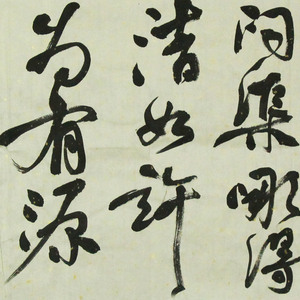 问渠哪得
清如许
为有源